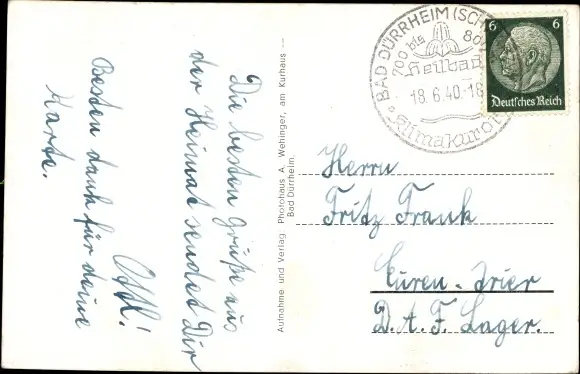 Die besten Grüße aus
der Heimat sendet Dir
Otti!
Besten dank für deine
Karte.
Aufnahme und Verlag Photohaus A. Wehinger, am Kurhaus
Bad Dürrheim.
BAD DÜRRHEIM (SCH
700 bis 80
Heilbad
18.6.40.-18
Klimakurort
6 6
Deutsches Reich
Herrn
Fritz Frank
Euren-Trier
D.A.F. Lager.